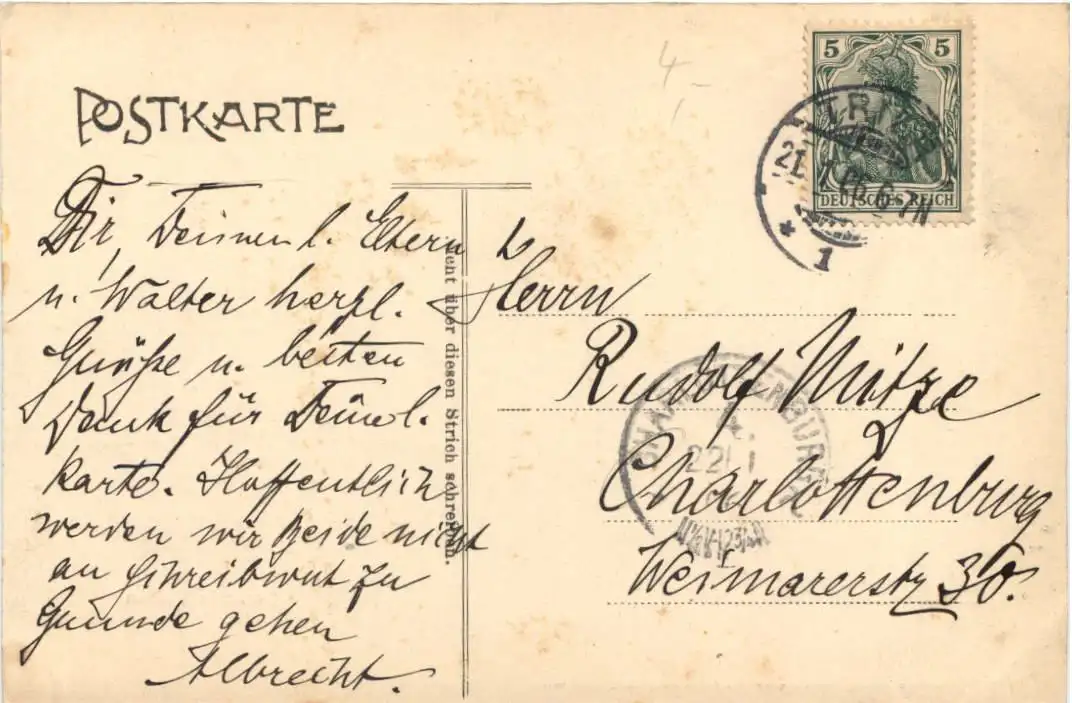 POSTKARTE
4,-
5 5
DEUTSCHES REICH
TRIER
21. 1. 06. 6-7N
* 1
Dir, Deinen l. Eltern
u. Walter herzl.
Grüße u. besten
Dank für Deine l.
Karte. Hoffentlich
werden wir Beide nicht
an Schreibwut zu
Grunde gehen
Albrecht.
nicht über diesen Strich schreiben.
Herrn
Rudolf Mütze
Charlottenburg
Weimarerstr 30.
CHARLOTTENBURG
22. 1